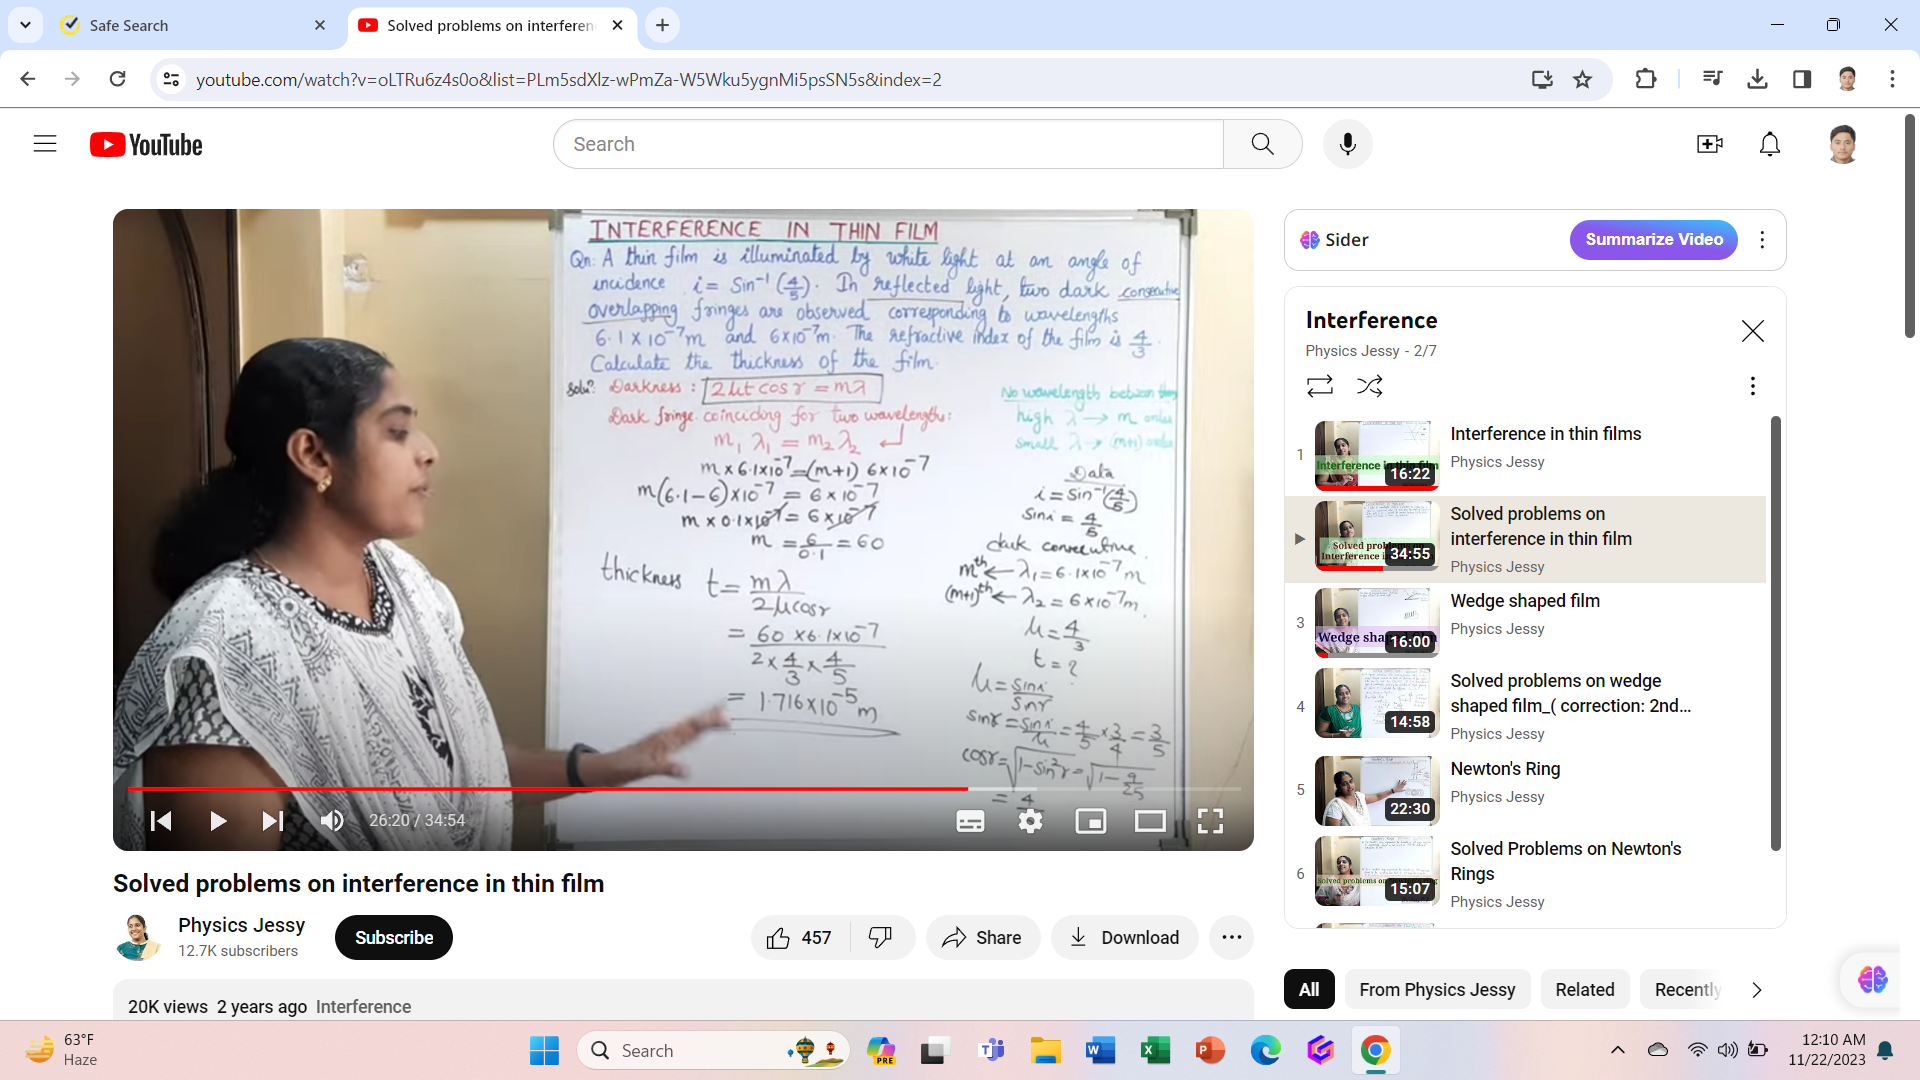 Safe Search
Solved problems on interferen
youtube.com/watch?v=oLTRu6z4s0o&list=PLm5sdXlz-wPmZa-W5Wku5ygnMi5psSN5s&index=2
YouTube
Search
INTERFERENCE IN THIN FILM
Qn: A thin film is illuminated by white light at an angle of
incidence i = Sin⁻¹(4/5). In reflected light, two dark consecutive
overlapping fringes are observed corresponding to wavelengths
6.1 x 10⁻⁷m and 6x10⁻⁷m. The refractive index of the film is 4/3.
Calculate the thickness of the film.
Soluⁿ: Darkness : 2μt cos r = mλ
Dark fringe coinciding for two wavelengths:
m₁ λ₁ = m₂ λ₂
m x 6.1x10⁻⁷ = (m+1) 6x10⁻⁷
m(6.1-6)x10⁻⁷ = 6x10⁻⁷
m x 0.1x10⁻⁷ = 6x10⁻⁷
m = 6/0.1 = 60
thickness t = mλ/2μcosr
= 60 x6.1x10⁻⁷/2x 4/3 x 4/5
= 1.716x10⁻⁵m
No wavelength between them
high λ → m order
small λ → (m+1) order
Data
i = sin⁻¹(4/5)
Sini = 4/5
dark consecutive
mth ← λ₁ = 6.1x10⁻⁷m
(m+1)th ← λ₂ = 6x10⁻⁷m
μ = 4/3
t = ?
μ = sini/sinr
sinr = sini/μ = 4/5 x 3/4 = 3/5
cosr = √1-sin²r = √1-9/25
= 4
26:20 / 34:54
Solved problems on interference in thin film
Physics Jessy
12.7K subscribers
Subscribe
457
Share
Download
20K views 2 years ago Interference
Sider
Summarize Video
Interference
Physics Jessy - 2/7
1
Interference in thin film
16:22
Interference in thin films
Physics Jessy
Solved
Interference
34:55
Solved problems on
interference in thin film
Physics Jessy
3
Wedge sha
16:00
Wedge shaped film
Physics Jessy
4
14:58
Solved problems on wedge
shaped film_( correction: 2nd...
Physics Jessy
5
22:30
Newton's Ring
Physics Jessy
6
15:07
Solved Problems on Newton's
Rings
Physics Jessy
All
From Physics Jessy
Related
Recently
63°F
Haze
Search
PRE
12:10 AM
11/22/2023